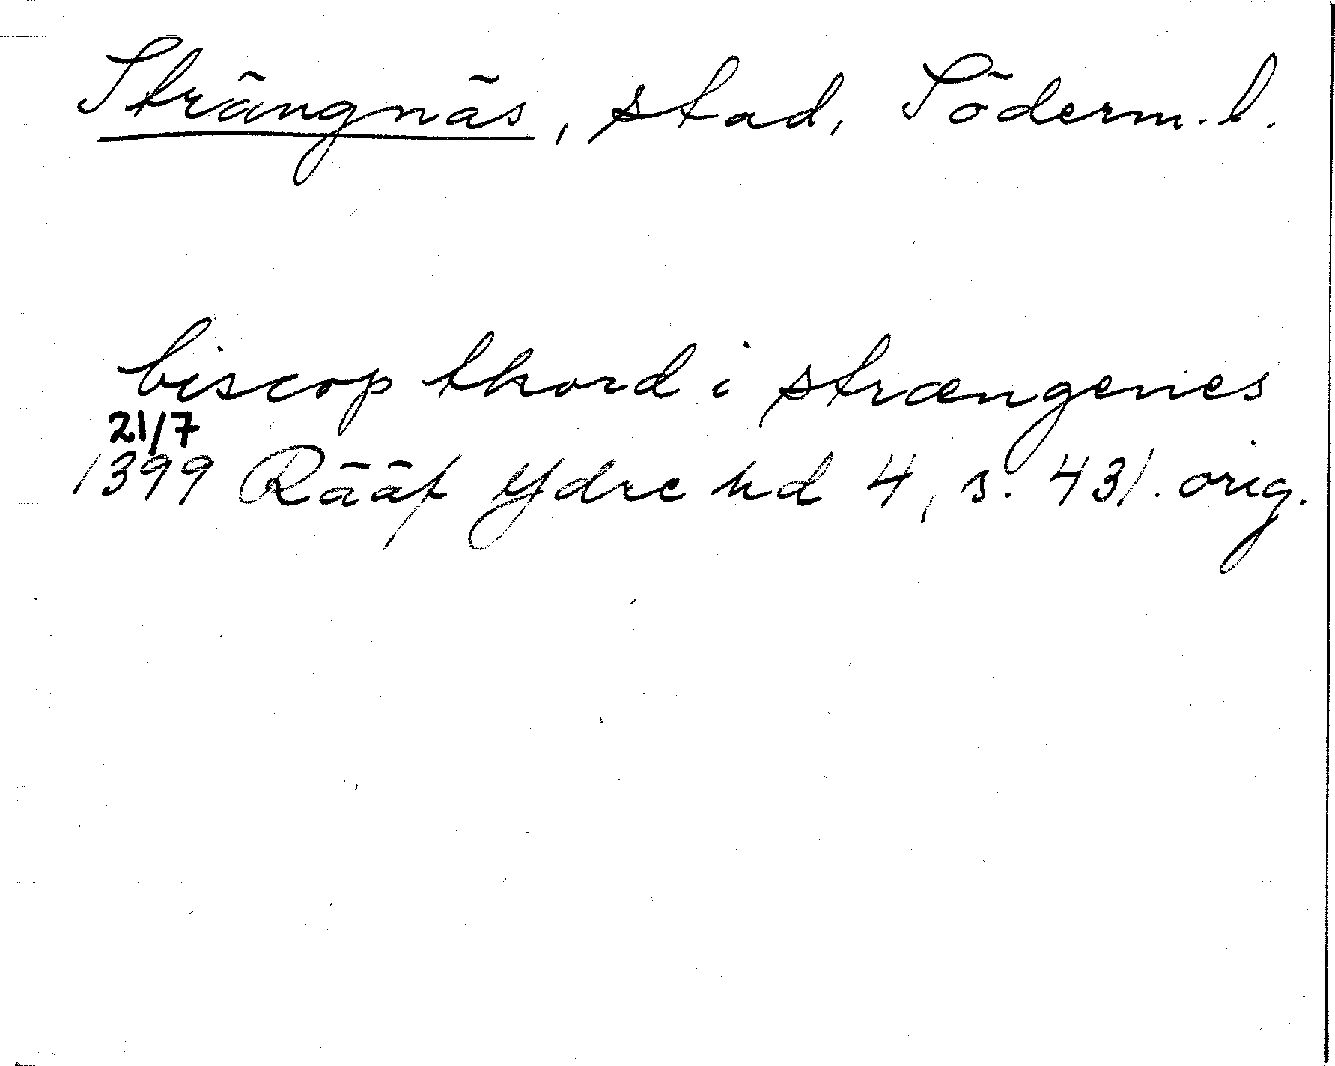 Strängnäs, stad, Söderm. l.
biscop thord i strængenes
21/7
1399 Rääf Ydre hd 4, s. 431. orig.